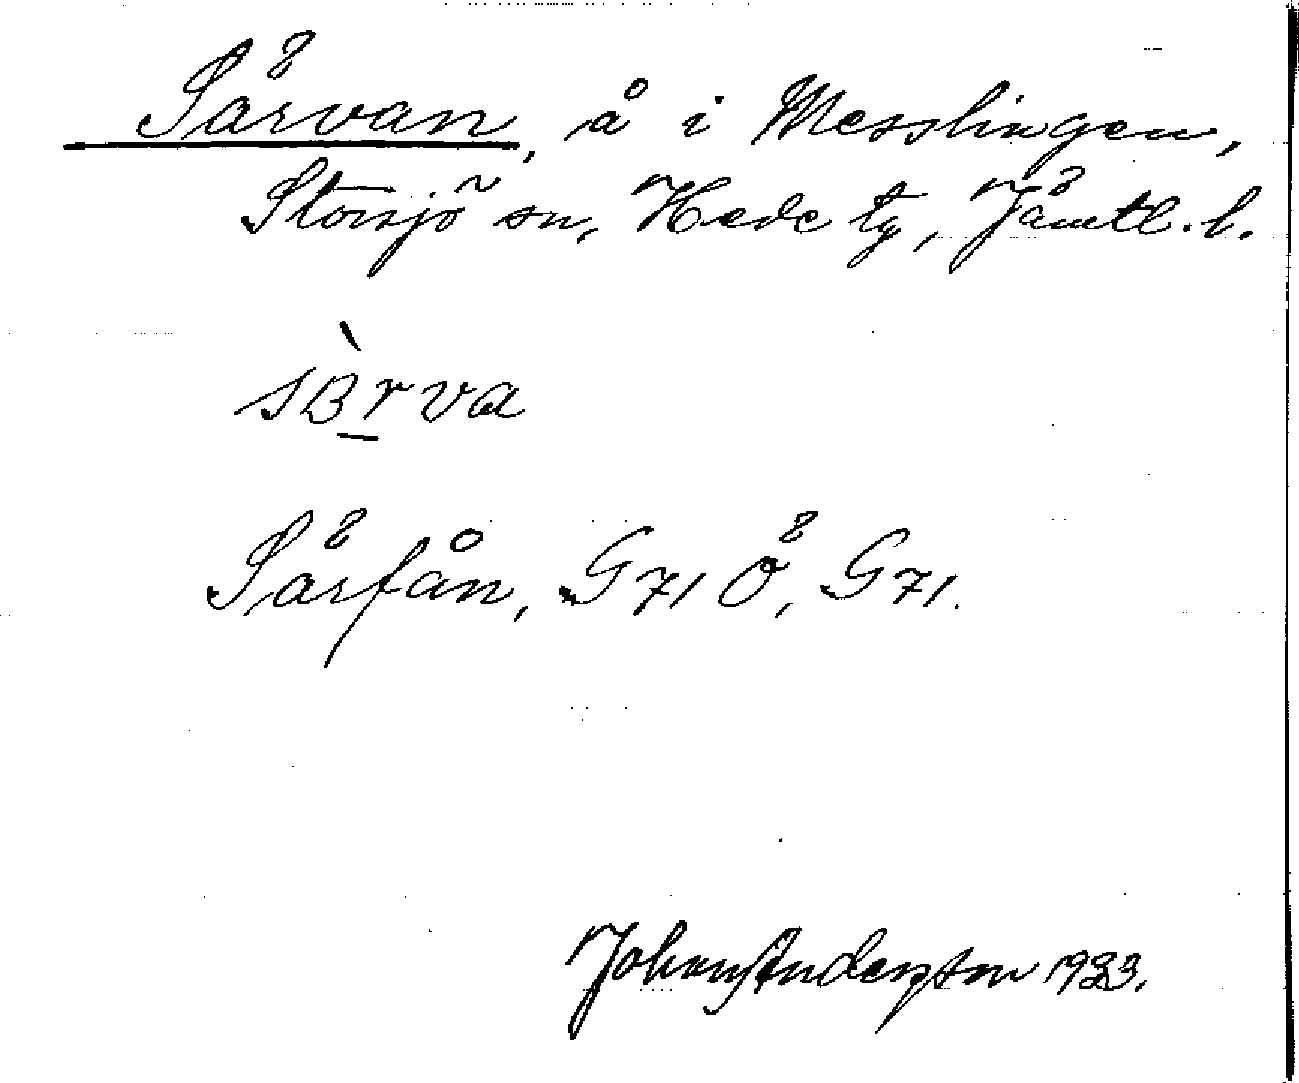 Särvan, å i Messlingen,
Storsjö sn, Hede tg, Jämtl. l.
sàrva
Särfån, G71 Ö, G71.
Johan Anderson 1933.